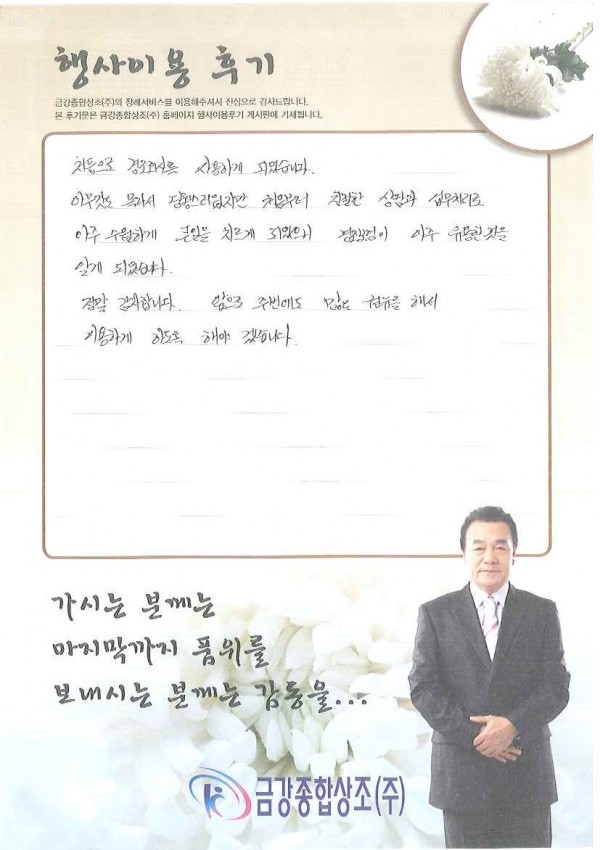 행사이용 후기
금강종합상조(주)의 장례서비스를 이용해주셔서 진심으로 감사드립니다.
본 후기문은 금강종합상조(주) 홈페이지 행사이용후기 게시판에 기재됩니다.
처음으로 경조회사를 사용하게 되었습니다.
아무것도 몰라서 당황스러웠지만 처음부터 친절한 상담과 업무처리로
아주 수월하게 큰일을 치르게 되었으며 이 아주 유용한것을
알게 되었습니다.
정말 감사합니다. 앞으로 주변에도 많은 권유를 해서
사용하게 하도록 해야 겠습니다.
가시는 분께는
마지막까지 품위를
보내시는 분께는 감동을...
금강종합상조(주)